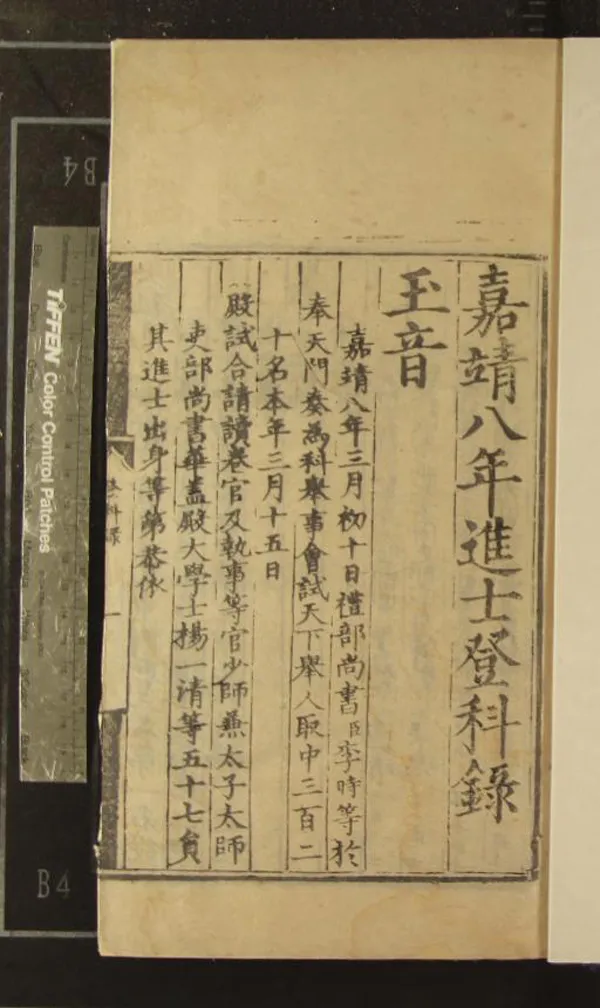 嘉靖八年進士登科錄
玉音
嘉靖八年三月初十日禮部尚書臣李時等於
奉天門奏為科舉事會試天下舉人取中三百二
十名本年三月十五日
殿試合請讀卷官及執事等官少師兼太子太師
吏部尚書華蓋殿大學士楊一清等五十七負
其進士出身等第恭依
登科錄
一
TIFFEN Color Control Patches
B4
B4